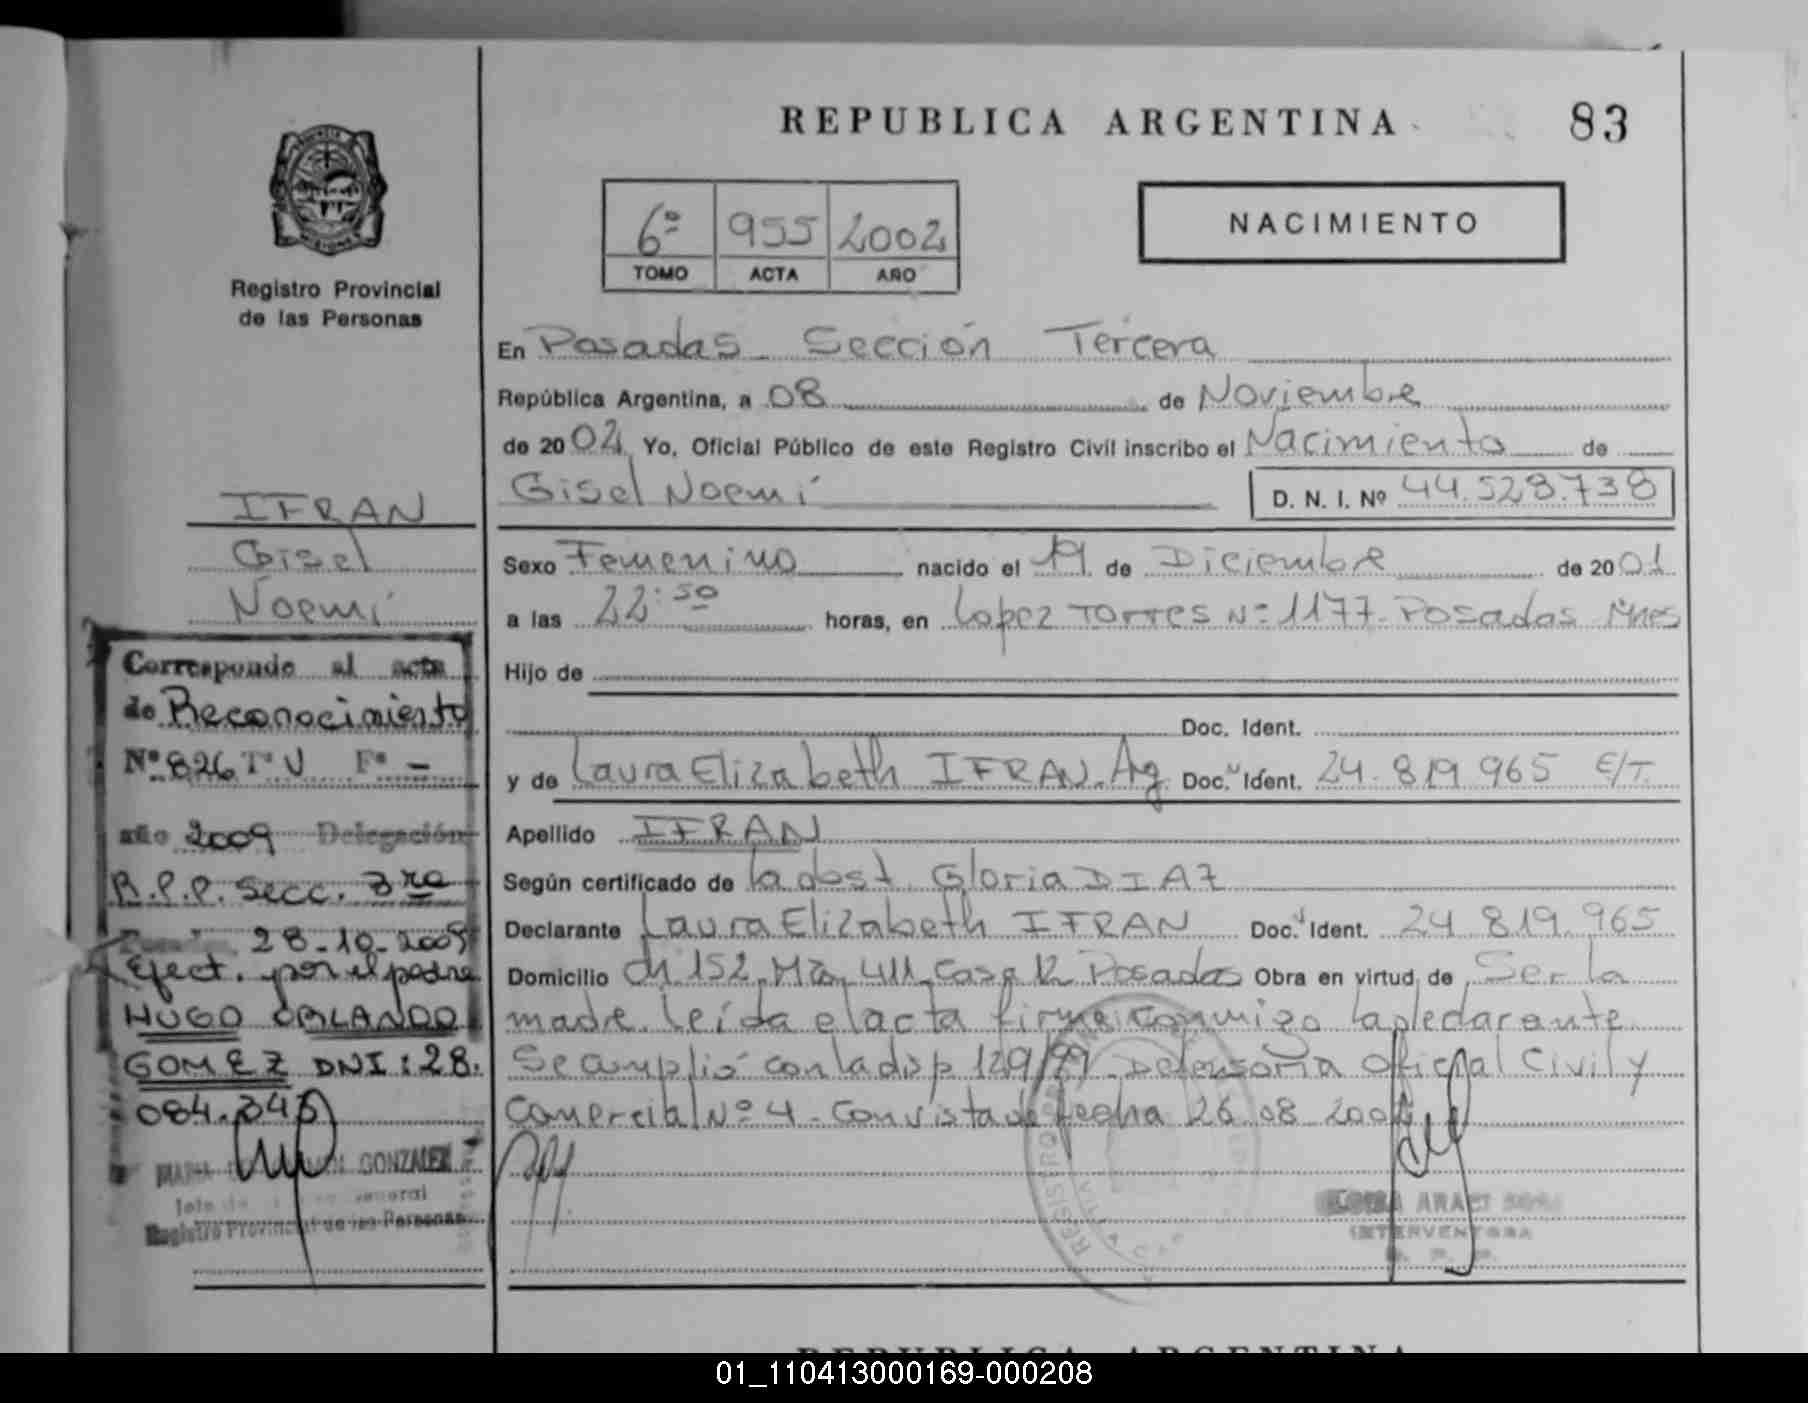 REPUBLICA ARGENTINA
83
6º 955 2002
TOMO ACTA AÑO
NACIMIENTO
Registro Provincial
de las Personas
En Posadas - Sección Tercera
República Argentina, a 08 de Noviembre
de 2002 Yo, Oficial Público de este Registro Civil inscribo el Nacimiento de
Gisel Noemí D. N. I. Nº 44.528.738
IFRAN
Gisel
Noemí
Sexo Femenino nacido el 19 de Diciembre de 2001
a las 22:50 horas, en Lopez Torres Nº 1177 - Posadas Mnes
Hijo de
Doc. Ident.
y de Laura Elizabeth IFRAN. Ag Doc. Ident. 24.819.965 E/T.
Apellido IFRAN
Según certificado de la obst. Gloria DIAZ
Declarante Laura Elizabeth IFRAN Doc. Ident. 24.819.965
Domicilio Ch 152. Mza. 411. Casa 12 Posadas Obra en virtud de Ser la
madre. Leída el acta firma conmigo la declarante
Se cumplió con la disp 129/99 - Defensoría Oficial Civil y
Comercial Nº 4 - Con vista de fecha 26.08.2002
Corresponde al acta
de Reconocimiento
Nº 826 Tº V Fº -
año 2009 Delegación
R.P.P. Secc. 3ra
28-10-2009
Efect. por el padre
HUGO ORLANDO
GOMEZ DNI: 28.
084.345
MARIA GONZALEZ
Registro Provincial de las Personas
INTERVENTORA
REPUBLICA ARGENTINA
01_110413000169-000208